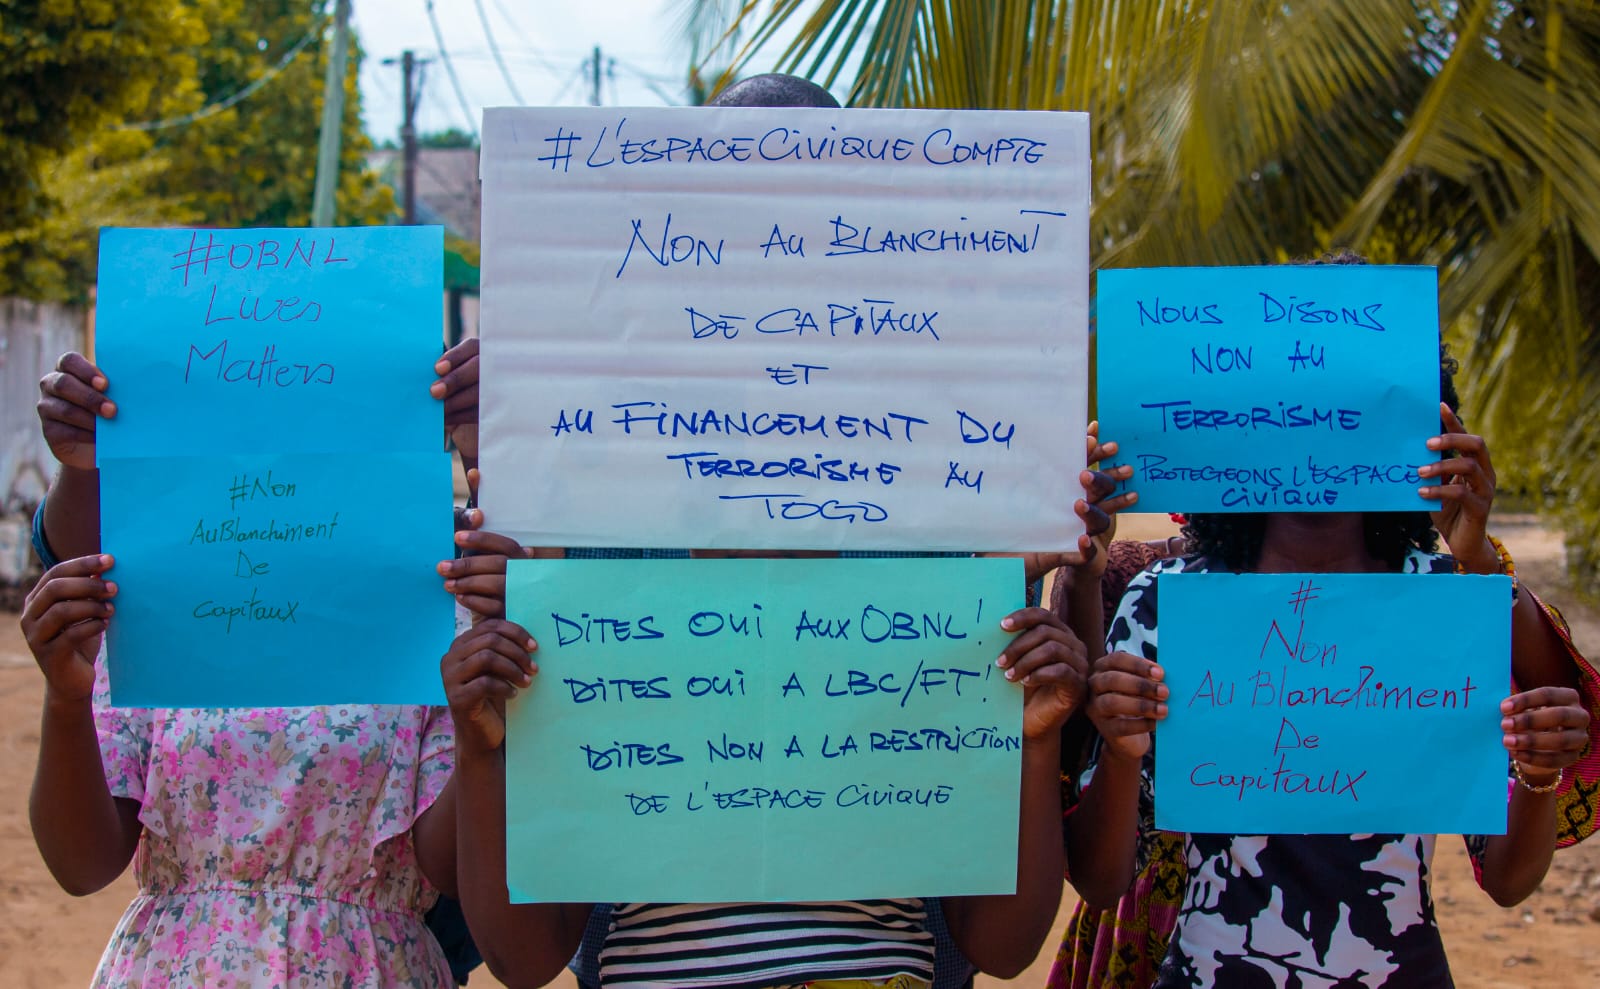 #OBNL
Lives
Matters
#Non
AuBlanchiment
De
Capitaux
#L'ESPACECIVIQUE COMPTE
NON AU BLANCHIMENT
DE CAPITAUX
ET
AU FINANCEMENT DU
TERRORISME AU
TOGO
DITES OUI AUX OBNL!
DITES OUI A LBC/FT!
DITES NON A LA RESTRICTION
DE L'ESPACE CIVIQUE
NOUS DISONS
NON AU
TERRORISME
# PROTEGEONS L'ESPACE
CIVIQUE
#
Non
Au Blanchiment
De
Capitaux